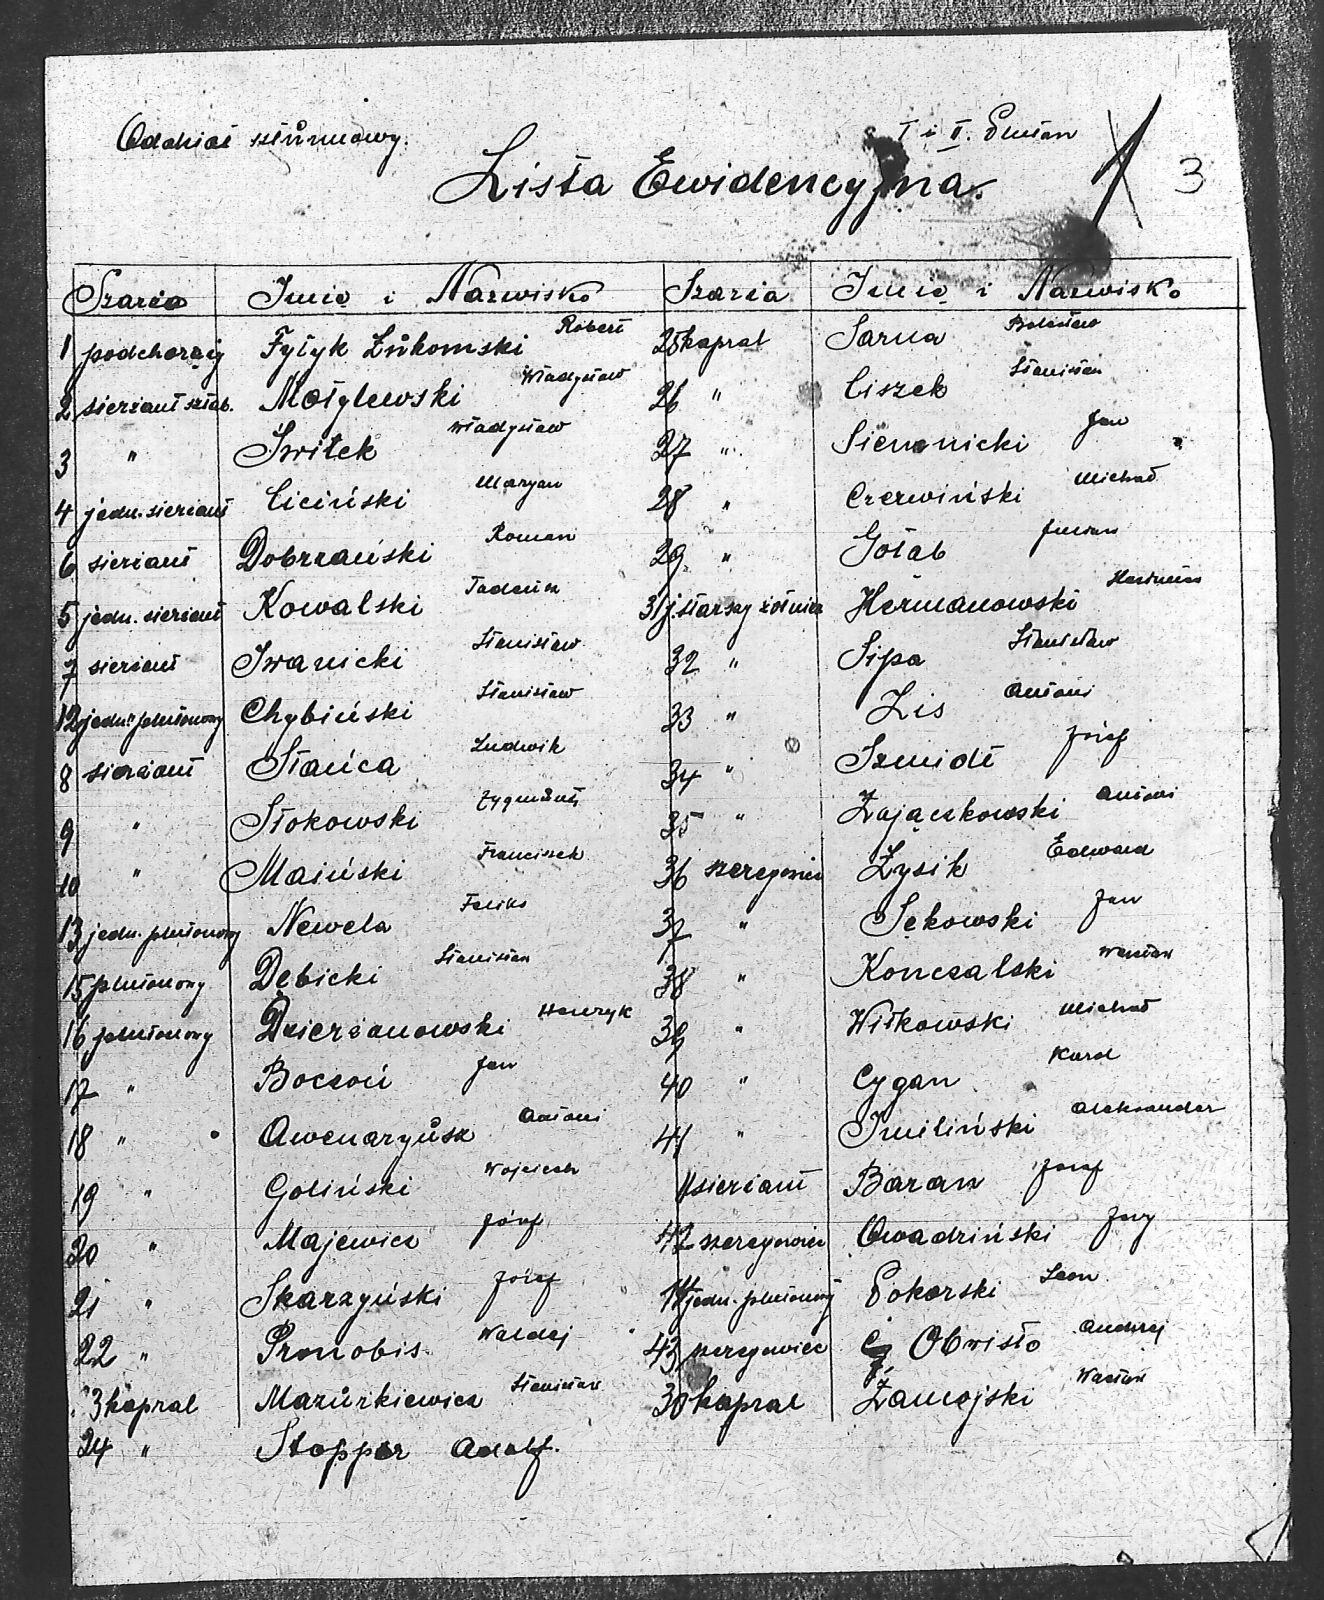 Oddział szturmowy.
I i II. Pluton
3
Lista Ewidencyjna.
Szarża Imię i Nazwisko Szarża Imię i Nazwisko
1 podchorąży Fytyk Łukomski Robert
2 sierżant sztab. Motylewski Władysław
3 " Świtek Władysław
4 jedn. sierżant Ciciński Maryan
6 sierżant Dobrzański Roman
5 jedn. sierżant Kowalski Tadeusz
7 sierżant Iwanicki Stanisław
12 jedn. plutonowy Chybiński Stanisław
8 sierżant Stańca Ludwik
9 " Stokowski Zygmunt
10 " Maiński Franciszek
13 jedn. plutonowy Newela Feliks
15 plutonowy Dębicki Stanisław
16 plutonowy Dzierżanowski Henryk
17 " Boczoń Jan
18 " Awenaryusz Antoni
19 " Goliński Wojciech
20 " Majewicz Józef
21 " Skarzyński Józef
22 " Pronobis
3 kapral Mazurkiewicz Stanisław
24 " Stopper Adolf.
25 kapral Sarna Bolesław
26 " Ciszek Stanisław
27 " Siennicki Jan
28 " Czerwiński Michał
29 " Gołab Julian
31 j. starszy żołnierz Hermanowski
32 " Sipa Stanisław
33 " Lis Antoni
34 " Szmidt Józef
35 " Zajączkowski Antoni
36 szeregowiec Zysik Edward
37 " Sękowski Jan
38 " Konczalski Wacław
39 " Witkowski Michał
40 " Cygan Karol
41 " Imiliński Aleksander
11 sierżant Baran Józef
42 szeregowiec Owadziński Jerzy
14 jedn. plutonowy Pokorski Leon
43 szeregowiec Obristo Andrzej
30 kapral Zamojski Wacław